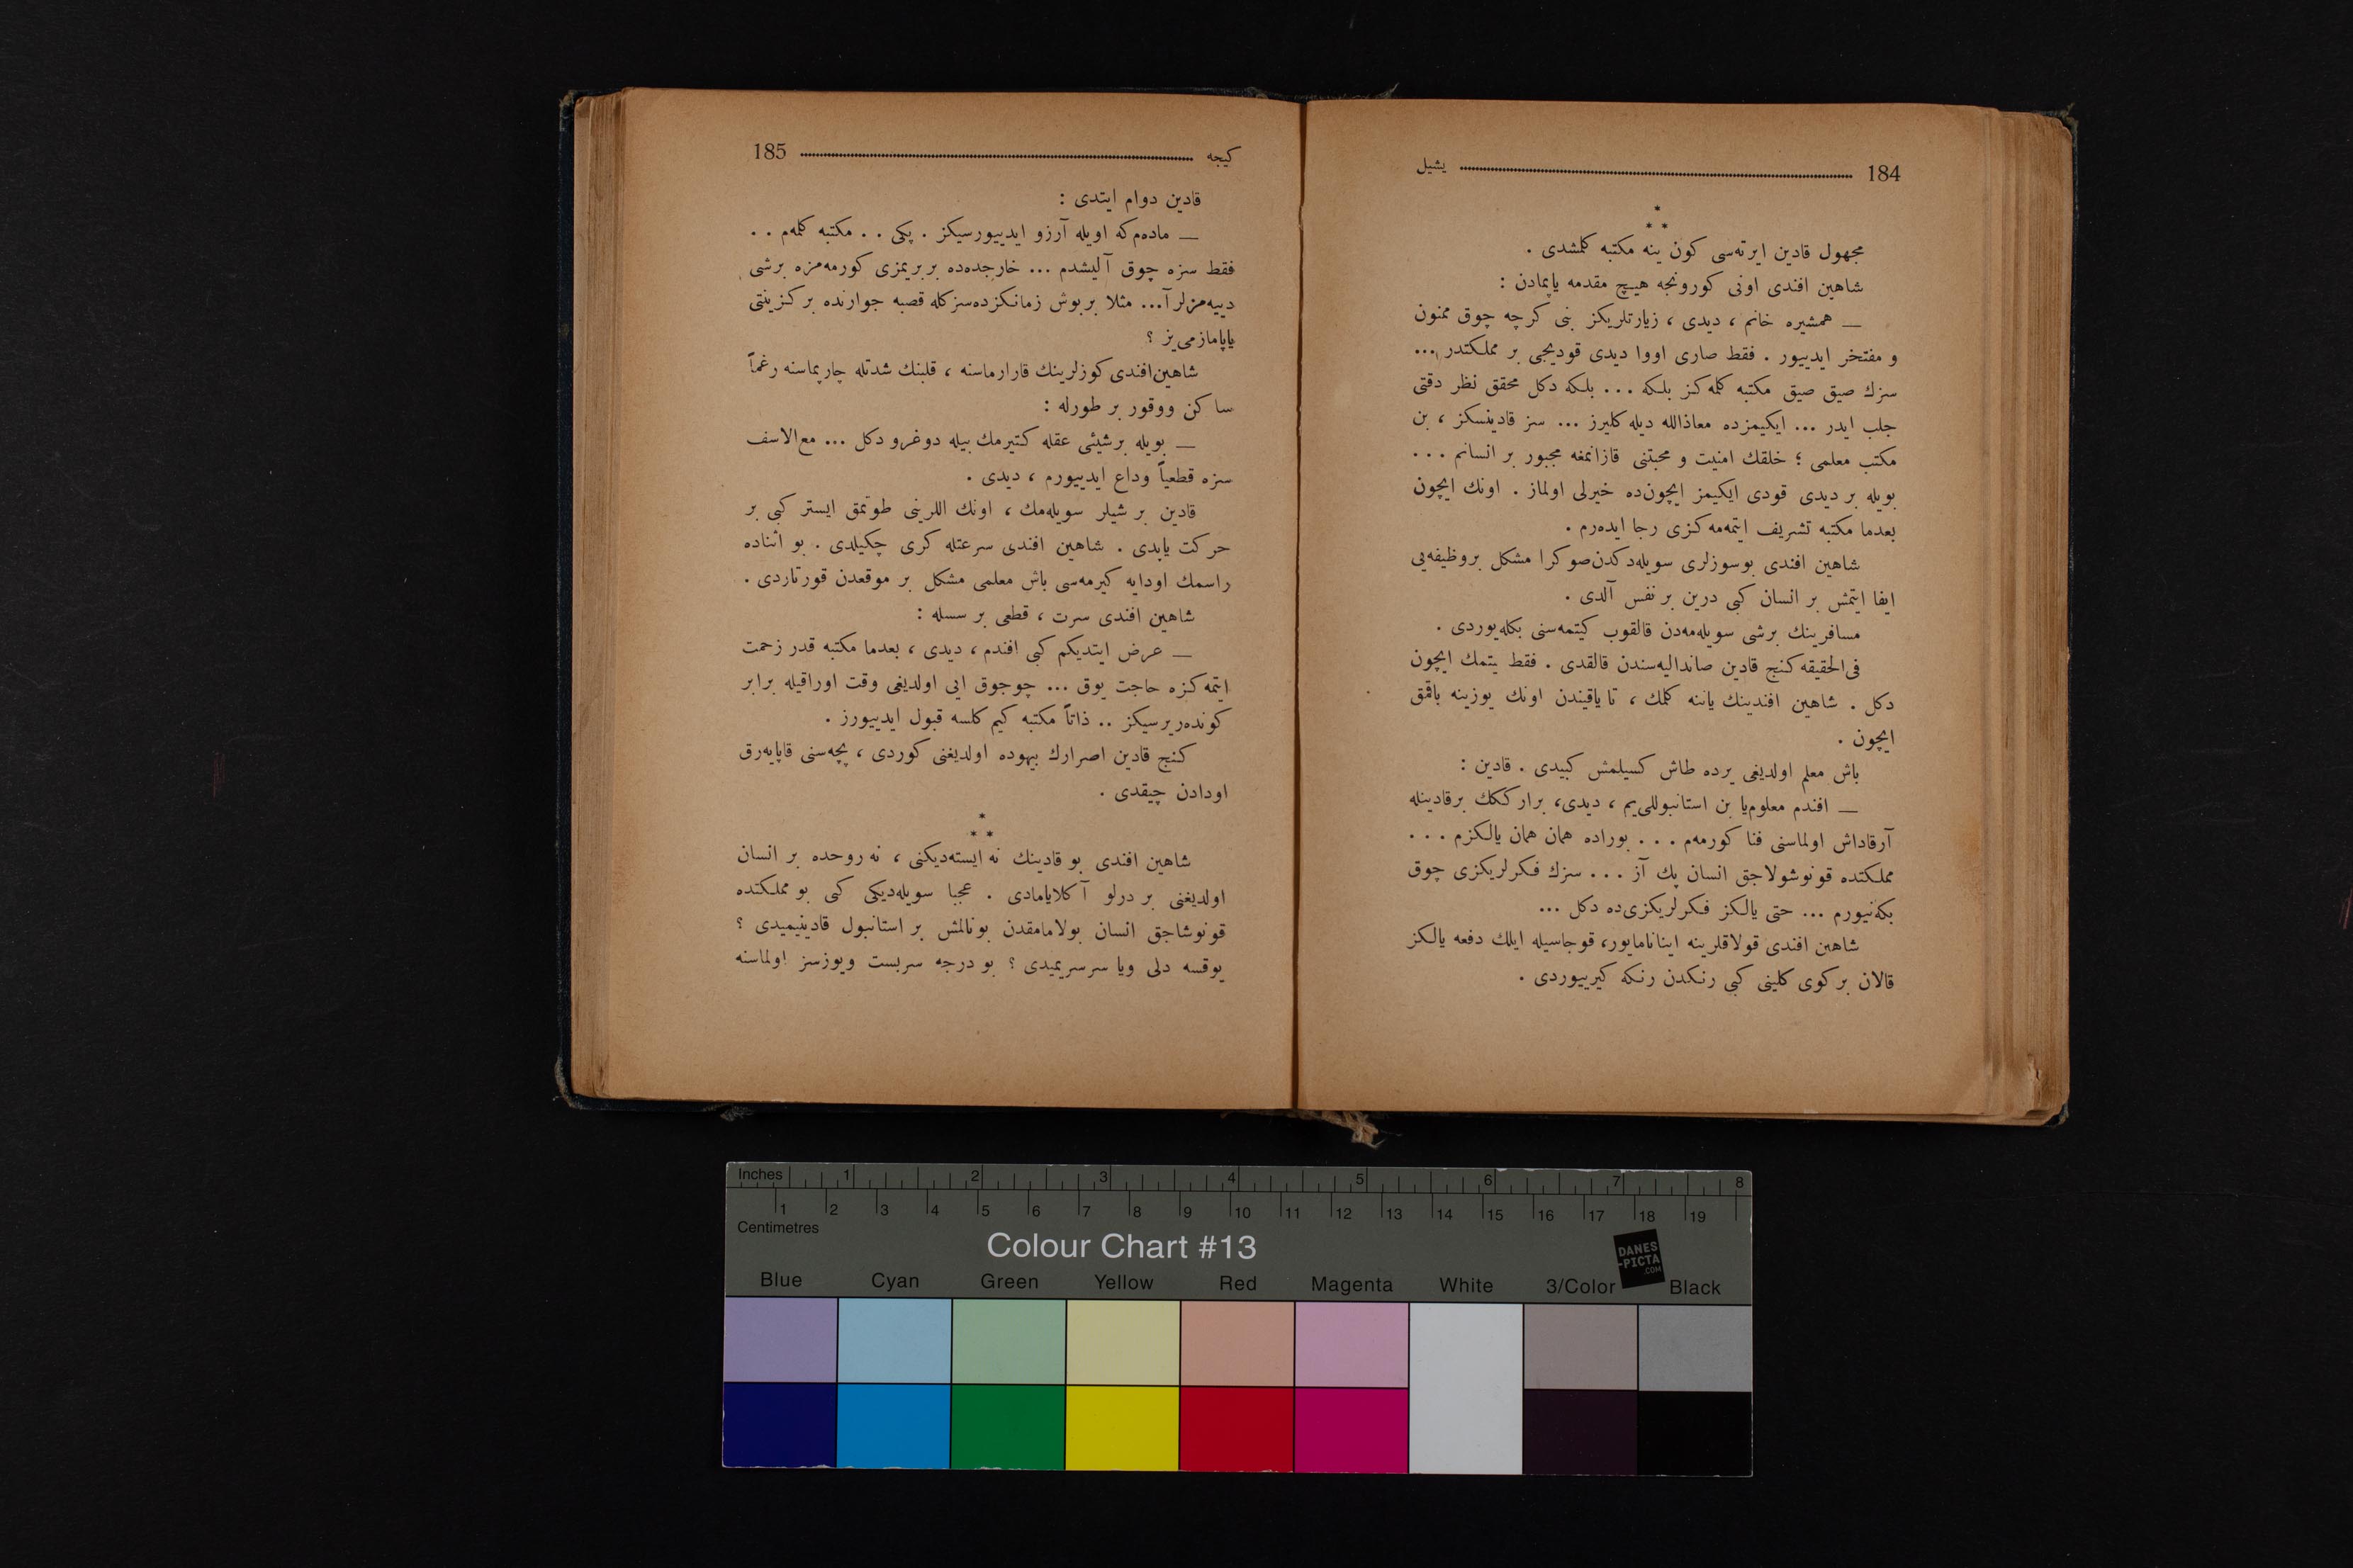 184 يشيل
*
* *
مجهول قادين ايرته‌سى كون ينه مكتبه كلمشدى .
شاهين افندى اونى كورونجه هيچ مقدمه ياپمادن :
— همشيره خانم ، ديدى ، زيارتلريكز بنى كرچه چوق ممنون
و مفتخر ايدييور . فقط صارى اووا ديدى قوديجى بر مملكتدر ...
سزك صيق صيق مكتبه كلمه‌كز بلكه ... بلكه دكل محقق نظر دقتى
جلب ايدر ... ايكيمزده معاذالله ديله كليرز ... سز قادينسكز ، بن
مكتب معلمى ؛ خلقك امنيت و محبتنى قازانمغه مجبور بر انسانم ...
بويله بر ديدى قودى ايكيمز ايچون‌ده خيرلى اولماز . اونك ايچون
بعدما مكتبه تشريف ايتمه‌مه‌كزى رجا ايده‌رم .
شاهين افندى بوسوزلرى سويله‌دكدن‌صوكرا مشكل بروظيفه‌يى
ايفا ايتمش بر انسان كبى درين بر نفس آلدى .
مسافرينك برشى سويله‌مه‌دن قالقوب كيتمه‌سنى بكله‌يوردى .
فى‌الحقيقه كنج قادين صانداليه‌سندن قالقدى . فقط يتمك ايچون
دكل . شاهين افندينك ياننه كلمك ، تا ياقيندن اونك يوزينه باقمق
ايچون .
باش معلم اولديغى يرده طاش كسيلمش كبيدى . قادين :
— افندم معلوم‌يا بن استانبوللى‌يم ، ديدى، برارككك برقادينله
آرقاداش اولماسنى فنا كورمه‌م . . . بوراده همان همان يالكزم . . .
مملكتده قونوشولاجق انسان پك آز . . . سزك فكرلريكزى چوق
بكه‌نيورم ... حتى يالكز فكرلريكزى‌ده دكل ...
شاهين افندى قولاقلرينه اينانامايور، قوجاسيله ايلك دفعه يالكز
قالان بر كوى كلينى كبى رنكدن رنكه كيرييوردى .
كيجه 185
قادين دوام ايتدى :
— مادهم‌كه اويله آرزو ايدييورسيكز . پكى . . مكتبه كلمه‌م . .
فقط سزه چوق آليشدم ... خارجده‌ده بربريمزى كورمه‌مزه برشى
دييه‌مزلرآ... مثلا بربوش زمانكزده‌سزكله قصبه جوارنده بر كزينتى
ياپامازمى‌يز ؟
شاهين‌افندى كوزلرينك قارارماسنه ، قلبنك شدتله چارپماسنه رغماً
ساكن ووقور بر طورله :
— بويله برشيئى عقله كتيرمك بيله دوغرو دكل ... مع‌الاسف
سزه قطعياً وداع ايدييورم ، ديدى .
قادين بر شيلر سويله‌مك ، اونك اللرينى طوتمق ايستر كبى بر
حركت ياپدى . شاهين افندى سرعتله كرى چكيلدى . بو اثناده
راسمك اودايه كيرمه‌سى باش معلمى مشكل بر موقعدن قورتاردى .
شاهين افندى سرت ، قطعى بر سسله :
— عرض ايتديكم كبى افندم ، ديدى ، بعدما مكتبه قدر زحمت
ايتمه‌كزه حاجت يوق ... چوجوق ايى اولديغى وقت اوراقيله برابر
كونده‌ريرسيكز .. ذاتاً مكتبه كيم كلسه قبول ايدييورز .
كنج قادين اصرارك بيهوده اولديغنى كوردى ، پچه‌سنى قاپايه‌رق
اودادن چيقدى .
*
* *
شاهين افندى بو قادينك نه ايسته‌ديكنى ، نه روحده بر انسان
اولديغنى بر درلو آكلايامادى . عجبا سويله‌ديكى كبى بو مملكتده
قونوشاجق انسان بولامامقدن بونالمش بر استانبول قادينيميدى ؟
يوقسه دلى ويا سرسريميدى ؟ بو درجه سربست ويوزسز اولماسنه
Inches 1 2 3 4 5 6 7 8
1 2 3 4 5 6 7 8 9 10 11 12 13 14 15 16 17 18 19
Centimetres
Colour Chart #13
DANES
-PICTA
.COM
Blue Cyan Green Yellow Red Magenta White 3/Color Black